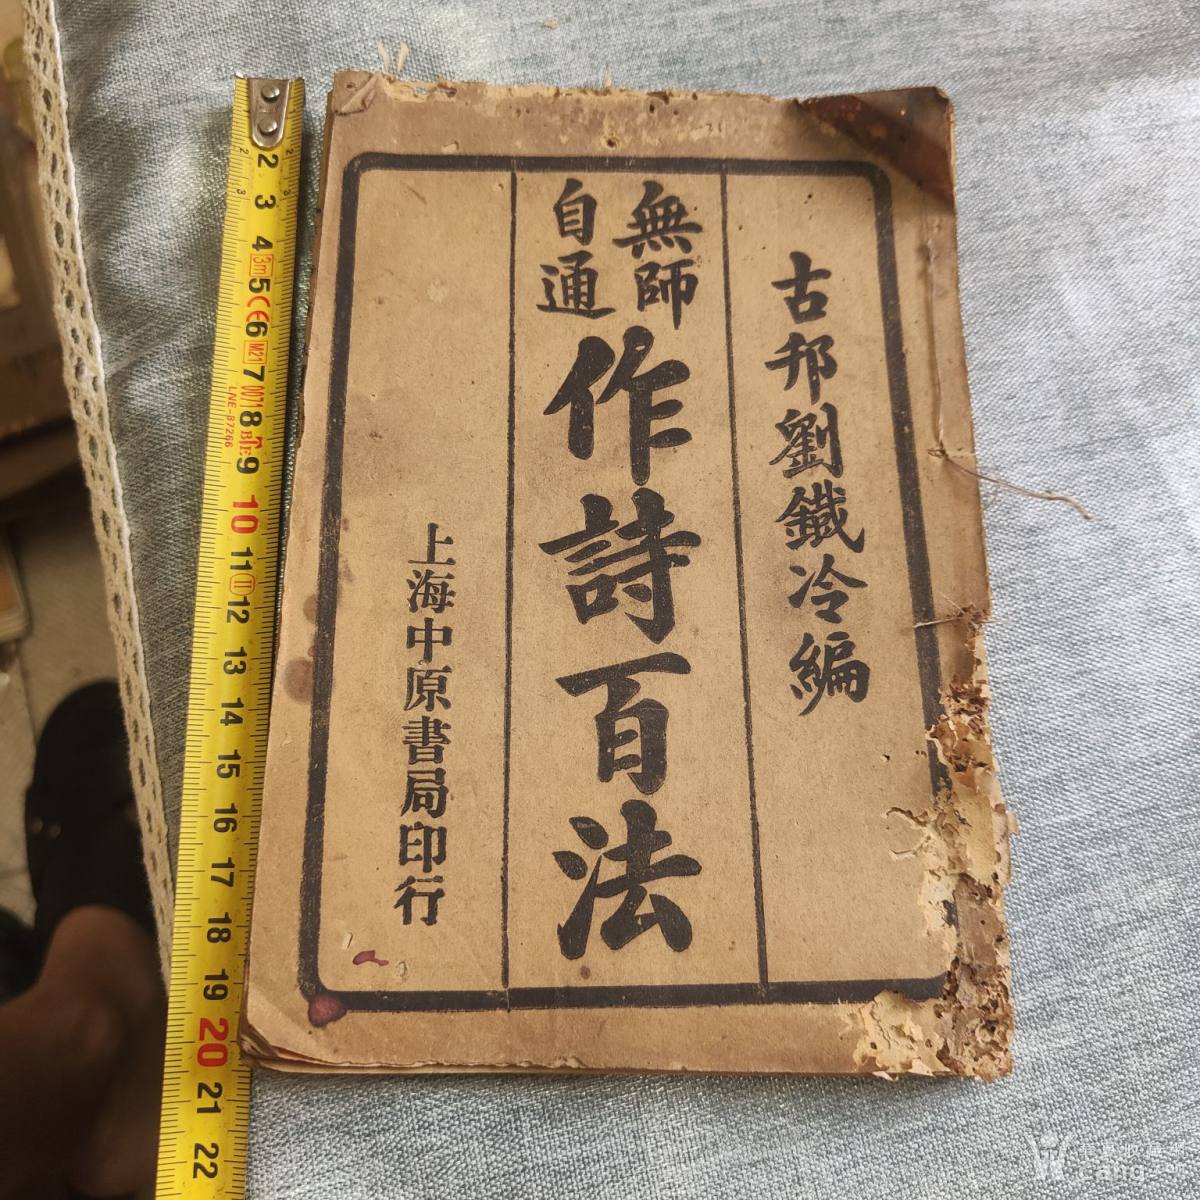 古邦劉鐵冷編
無師
自通
作詩百法
上海中原書局印行
2
3
4
3m
5
CE
6
M21
7
0071
8
9
10
11
12
13
14
15
16
17
18
19
20
21
22
LNE-87266